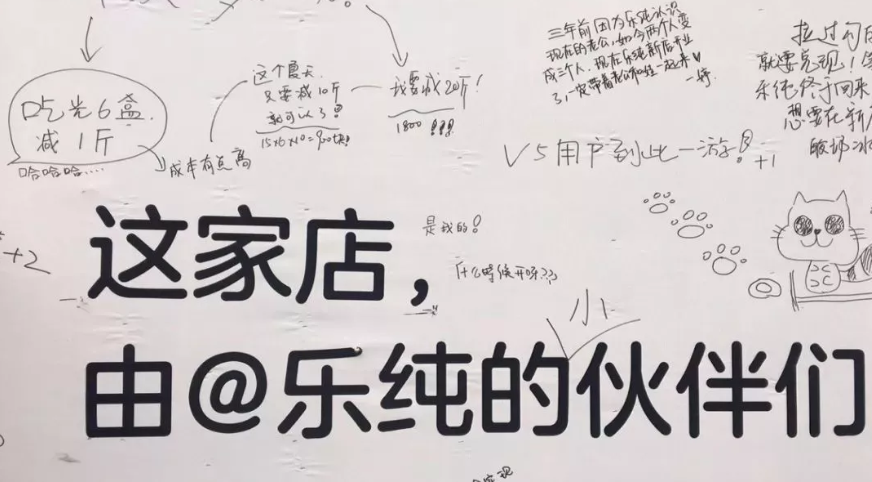 吃光6盒
减1斤
哈哈哈....
成本有点高
这个夏天
只要减10斤
就可以了!!
15×6×10=900块!
我要减20斤!
1800 !!!
三年前因为乐纯认识
现在的老公,如今两个人变
成三个人.现在乐纯新店开业
了,一定带着老公和娃一起来
V5用户到此一游!
+1
拉过勾
就要兑现!
乐纯终于回来
想要在新
+2
这家店,
是我的!
什么时候开呀???
小
由@乐纯的伙伴们